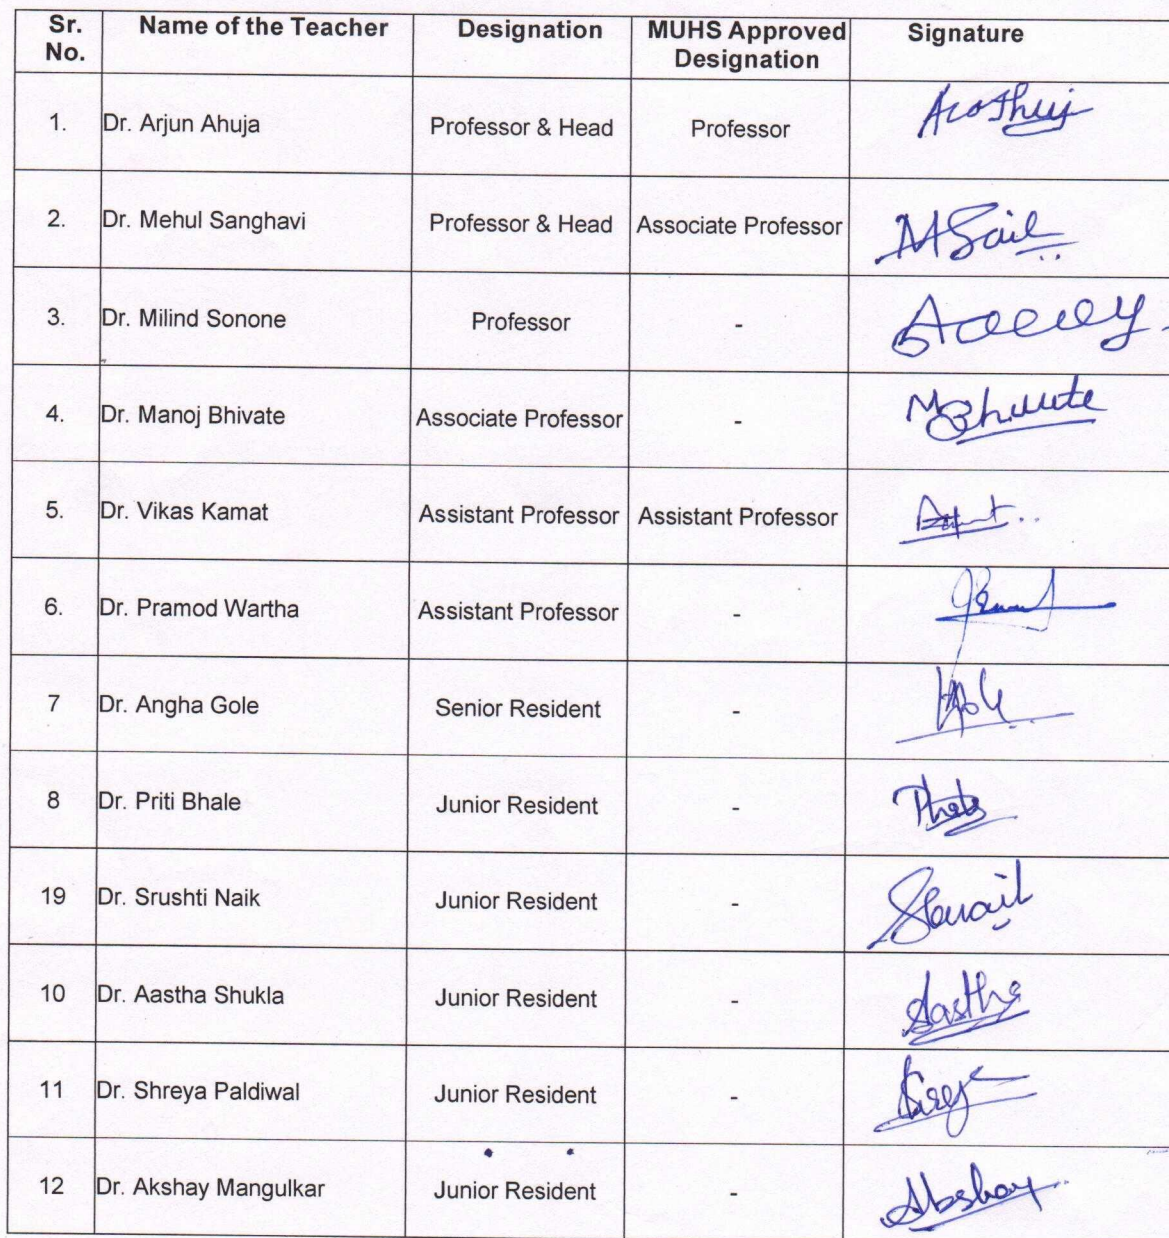 Sr. No. Name of the Teacher Designation MUHS Approved Designation Signature
1. Dr. Arjun Ahuja Professor & Head Professor
2. Dr. Mehul Sanghavi Professor & Head Associate Professor
3. Dr. Milind Sonone Professor -
4. Dr. Manoj Bhivate Associate Professor -
5. Dr. Vikas Kamat Assistant Professor Assistant Professor
6. Dr. Pramod Wartha Assistant Professor -
7 Dr. Angha Gole Senior Resident -
8 Dr. Priti Bhale Junior Resident -
19 Dr. Srushti Naik Junior Resident -
10 Dr. Aastha Shukla Junior Resident - Aastha
11 Dr. Shreya Paldiwal Junior Resident -
12 Dr. Akshay Mangulkar Junior Resident - Akshay